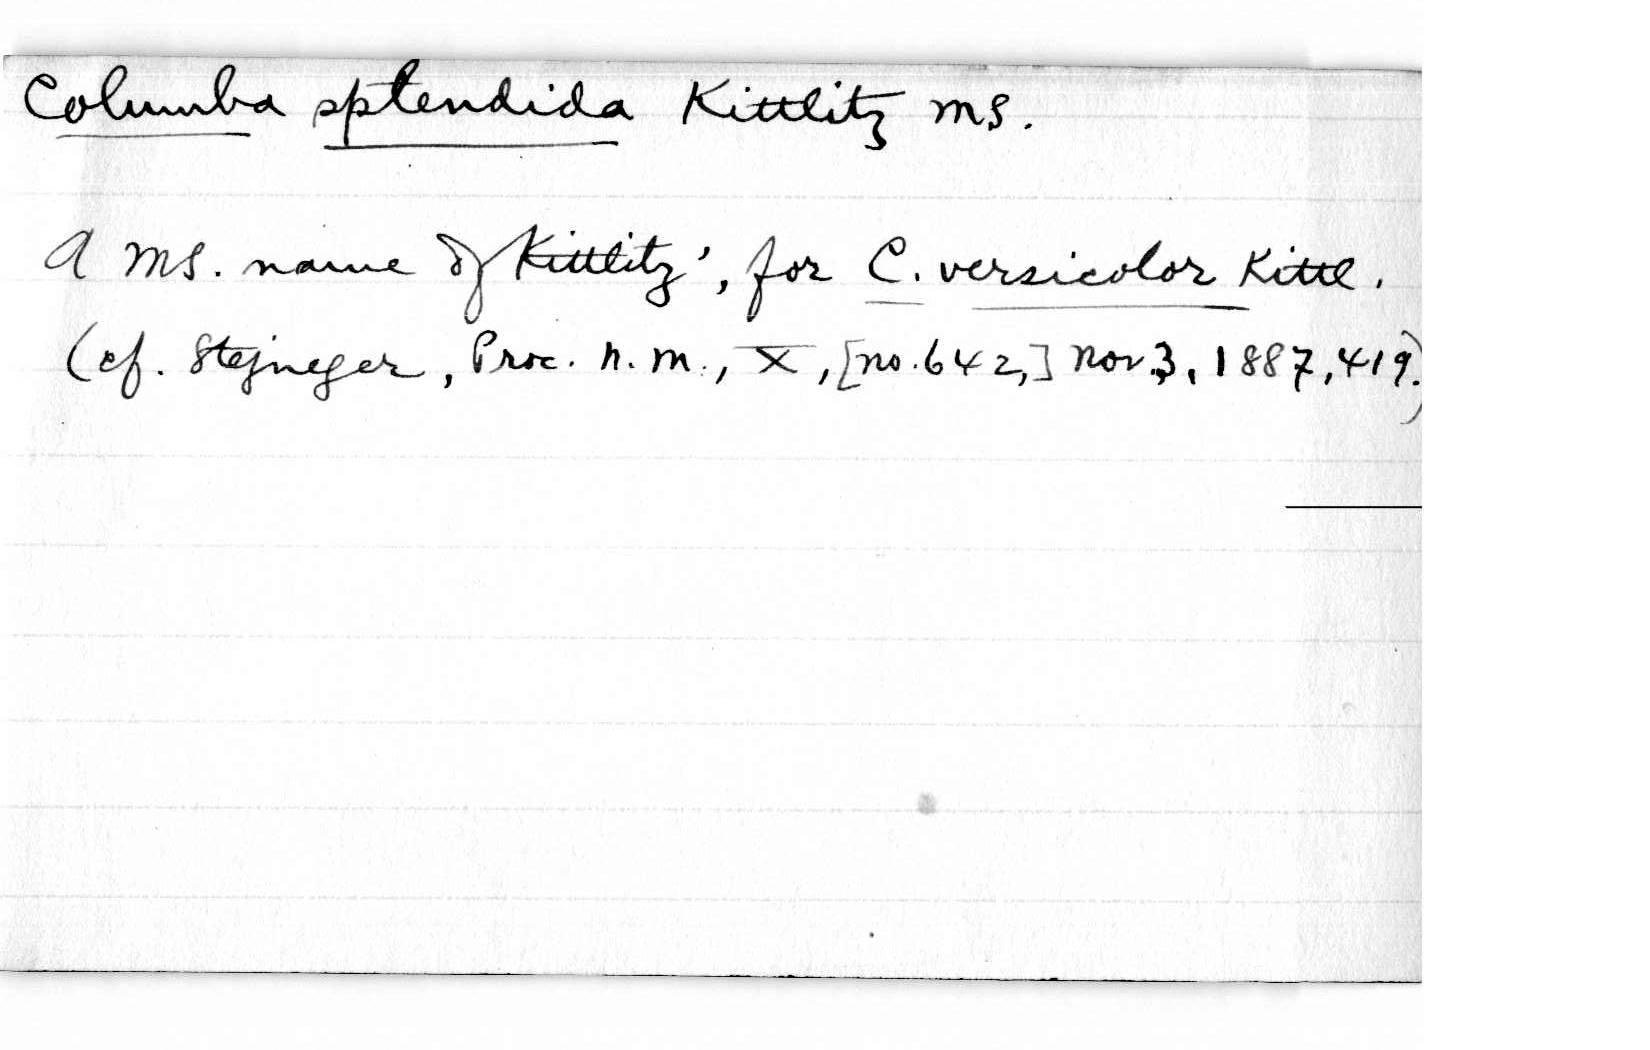 Columba splendida Kittlitz MS.
A MS. name of Kittlitz', for C. versicolor Kittl.
(cf. Stejneger, Proc. N. M., X, [no. 642,] Nov. 3, 1887, 419.)